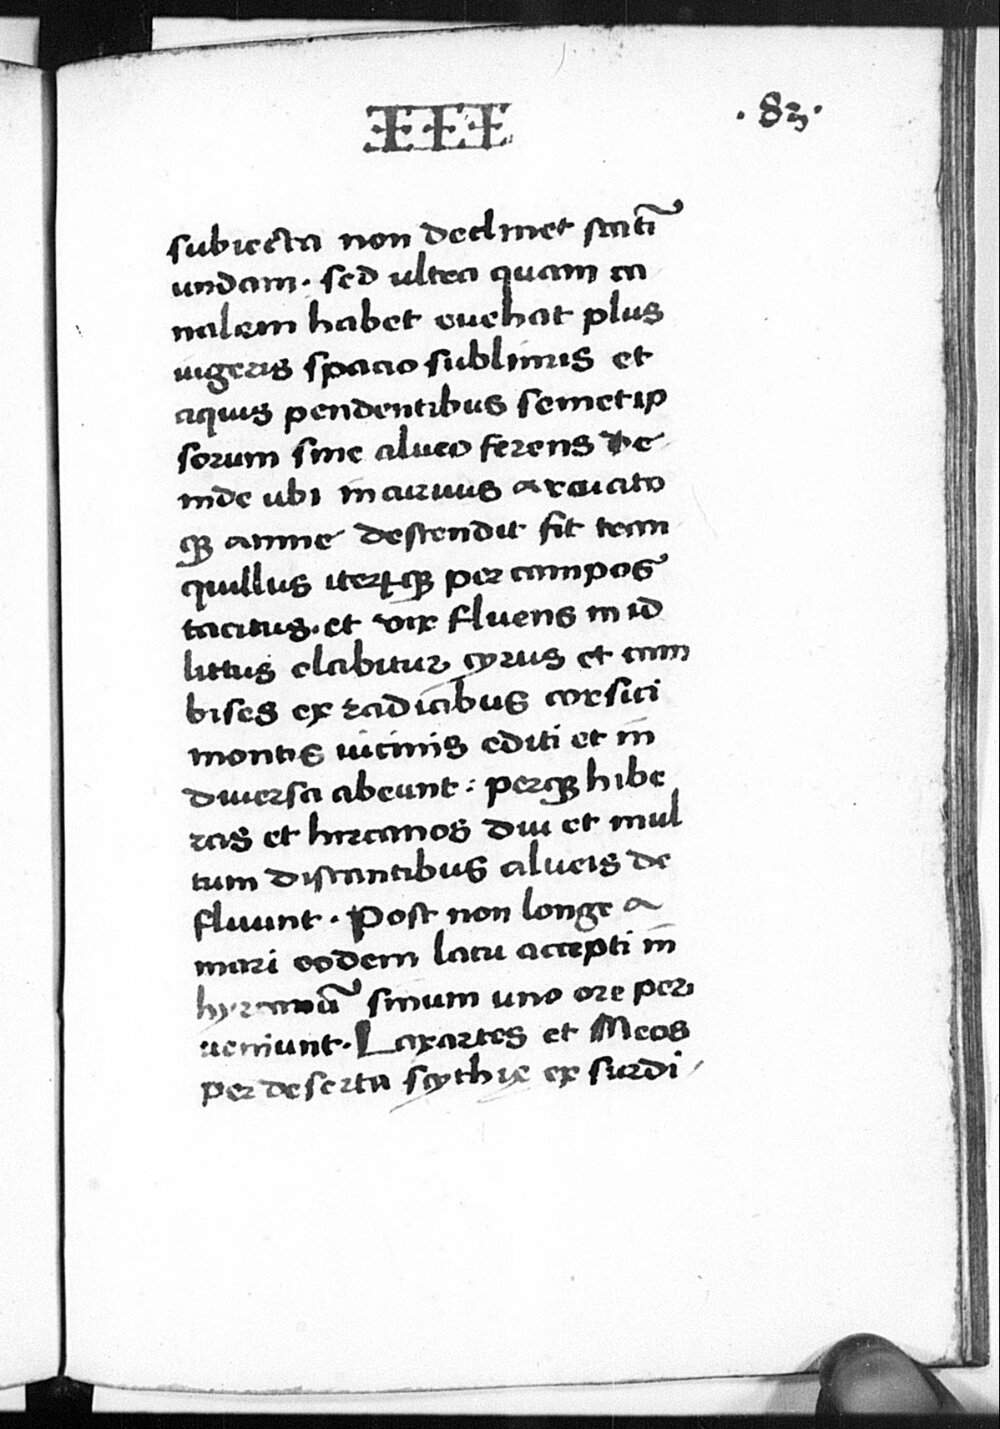 III
.83.
subiecta non declinet statĩ
undam. sed ultra quam ca
nalem habet euehat plus
iugeris spacio sublimis et
aquis pendentibus semetip
sorum sine alueo ferens de
inde ubi incuruus arcuato
qꝫ amne descendit fit tran
quillus iterꝝqꝫ per campos
tacitus. et vix fluens in id
littus elabitur cyrus et cam
bises ex radicibus corsici
montis uicinis editi et in
diuersa abeunt: perqꝫ hibe
ras et hircanos diu et mul
tum distantibus alueis de
fluunt. Post non longe a
mari eodem lacu accepti in
hyrcanũ sinum uno ore per
ueniunt. Laxartes et Meos
per deserta scythię ex surdi